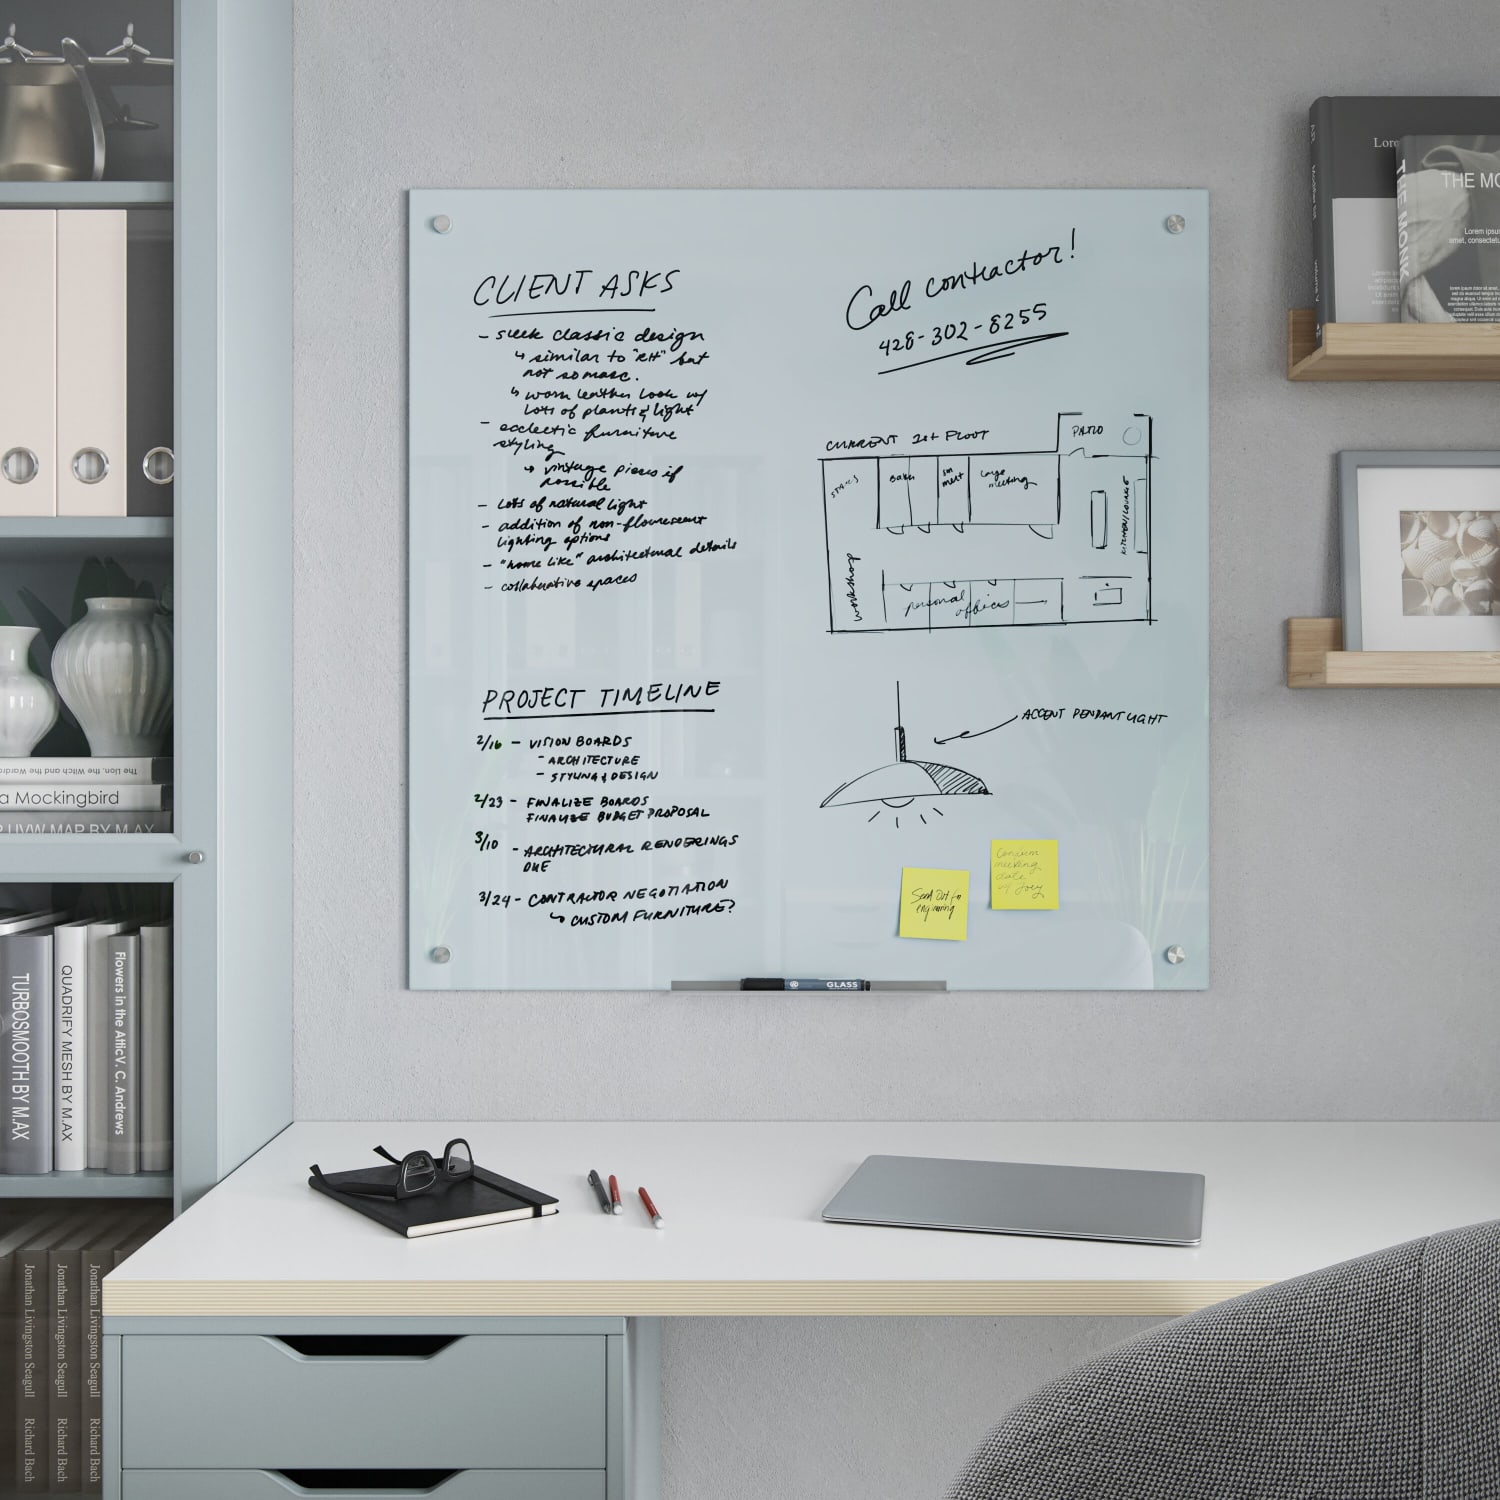 CLIENT ASKS
- sleek classic design
↳ similar to "RH" but
not so masc.
↳ worn leather look w/
lots of plants & light
- ecclectic furniture
styling
↳ vintage pieces if
possible
- Lots of natural light
- addition of non-flourescent
lighting options
- "home like" architectural details
- collaborative spaces
PROJECT TIMELINE
2/16 - VISION BOARDS
- ARCHITECTURE
- STYLING & DESIGN
2/23 - FINALIZE BOARDS
FINALIZE BUDGET PROPOSAL
3/10 - ARCHITECTURAL RENDERINGS
DUE
3/24 - CONTRACTOR NEGOTIATION
↳ CUSTOM FURNITURE?
Call contractor!
428-302-8255
CURRENT FLOOR
PATIO
STAIRS
sm
meet
large
meeting
KITCHEN/LOUNGE
workshop
personal
offices
ACCENT PENDANT LIGHT
Send Out for
Confirm
meeting
date
w/ Joey
GLASS
The Lion, the Witch and the Wardro
a Mockingbird
UVW MAP BY M.AX
TURBOSMOOTH BY M.AX
QUADRIFY MESH BY M.AX
Flowers in the Attic V. C. Andrews
Jonathan Livingston Seagull Richard Bach
Jonathan Livingston Seagull Richard Bach
Jonathan Livingston Seagull Richard Bach
Lore
THE MONK
THE MO
Lorem ipsu
amet, consectetu